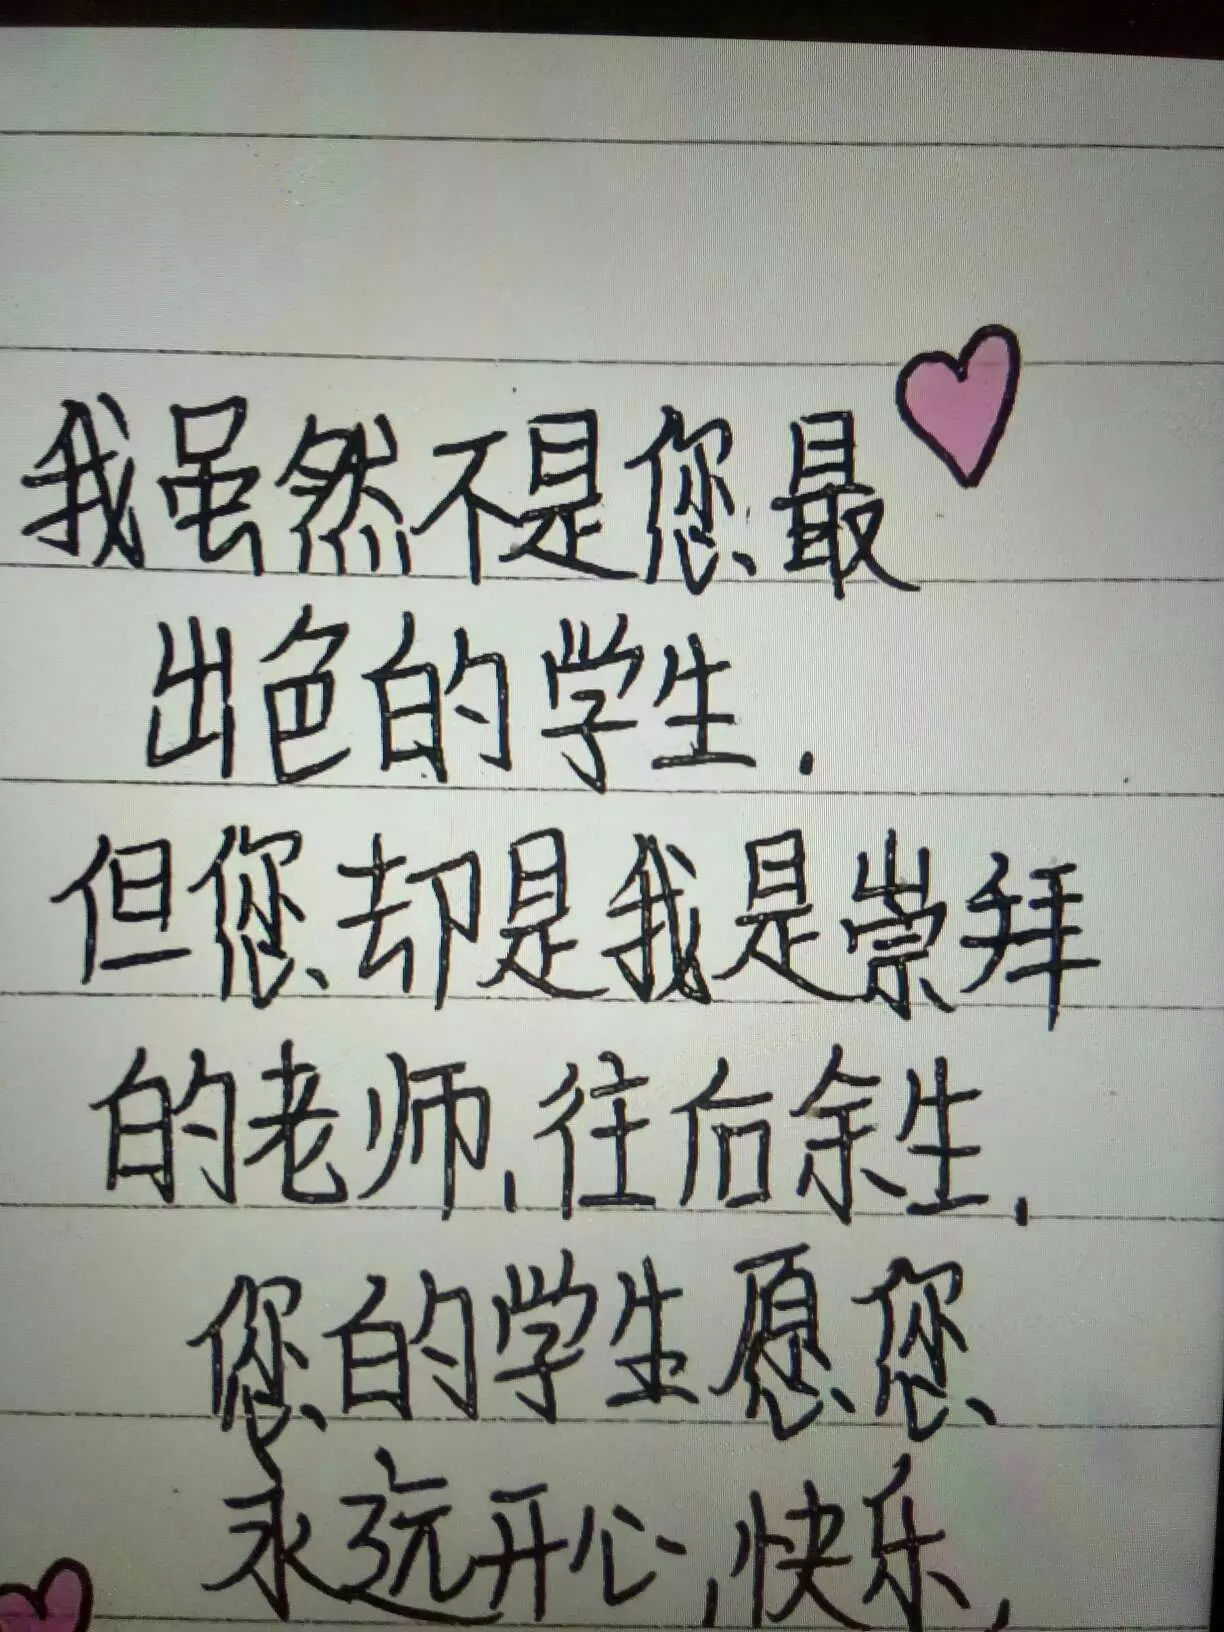 我虽然不是您最
出色的学生.
但您却是我是崇拜
的老师,往后余生,
您的学生愿您
永远开心,快乐,